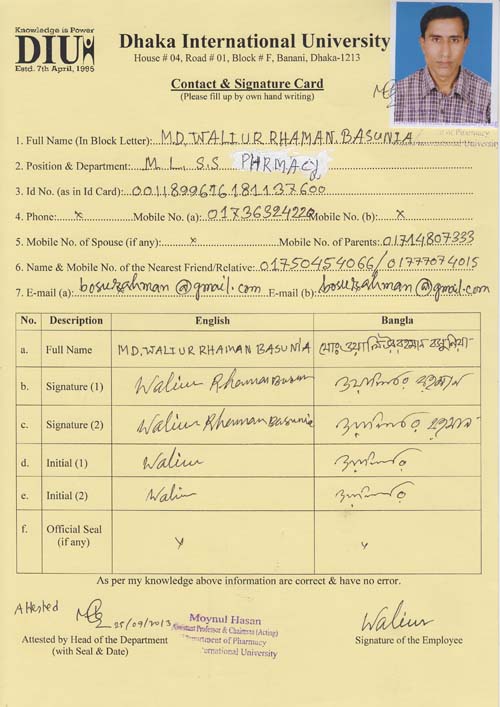 Knowledge is Power
DIU
Estd. 7th April, 1995
Dhaka International University
House # 04, Road # 01, Block # F, Banani, Dhaka-1213
Contact & Signature Card
(Please fill up by own hand writing)
1. Full Name (In Block Letter): MD. WALIUR RHAMAN. BASUNIA
2. Position & Department: M. L. S. S PHRMACY
3. Id No. (as in Id Card): 
4. Phone: x Mobile No. (a): 01736324220 Mobile No. (b): x
5. Mobile No. of Spouse (if any): x Mobile No. of Parents: 01714807333
6. Name & Mobile No. of the Nearest Friend/Relative: 01750454066/01777074015
7. E-mail (a): bosurahman@gmail.com E-mail (b): bosurahman@gmail.com
No. Description English Bangla
a. Full Name MD. WALIUR RHAMAN BASUNIA
b. Signature (1) Waliur Rhaman Basun
c. Signature (2) Waliur Rhaman Basunia
d. Initial (1) Waliur
e. Initial (2) Waliur
f. Official Seal
(if any)
As per my knowledge above information are correct & have no error.
Attested 25/09/2013 Moynul Hasan Waliur
Assistant Professor & Chairman (Acting)
Department of Pharmacy
International University
Attested by Head of the Department Signature of the Employee
(with Seal & Date)